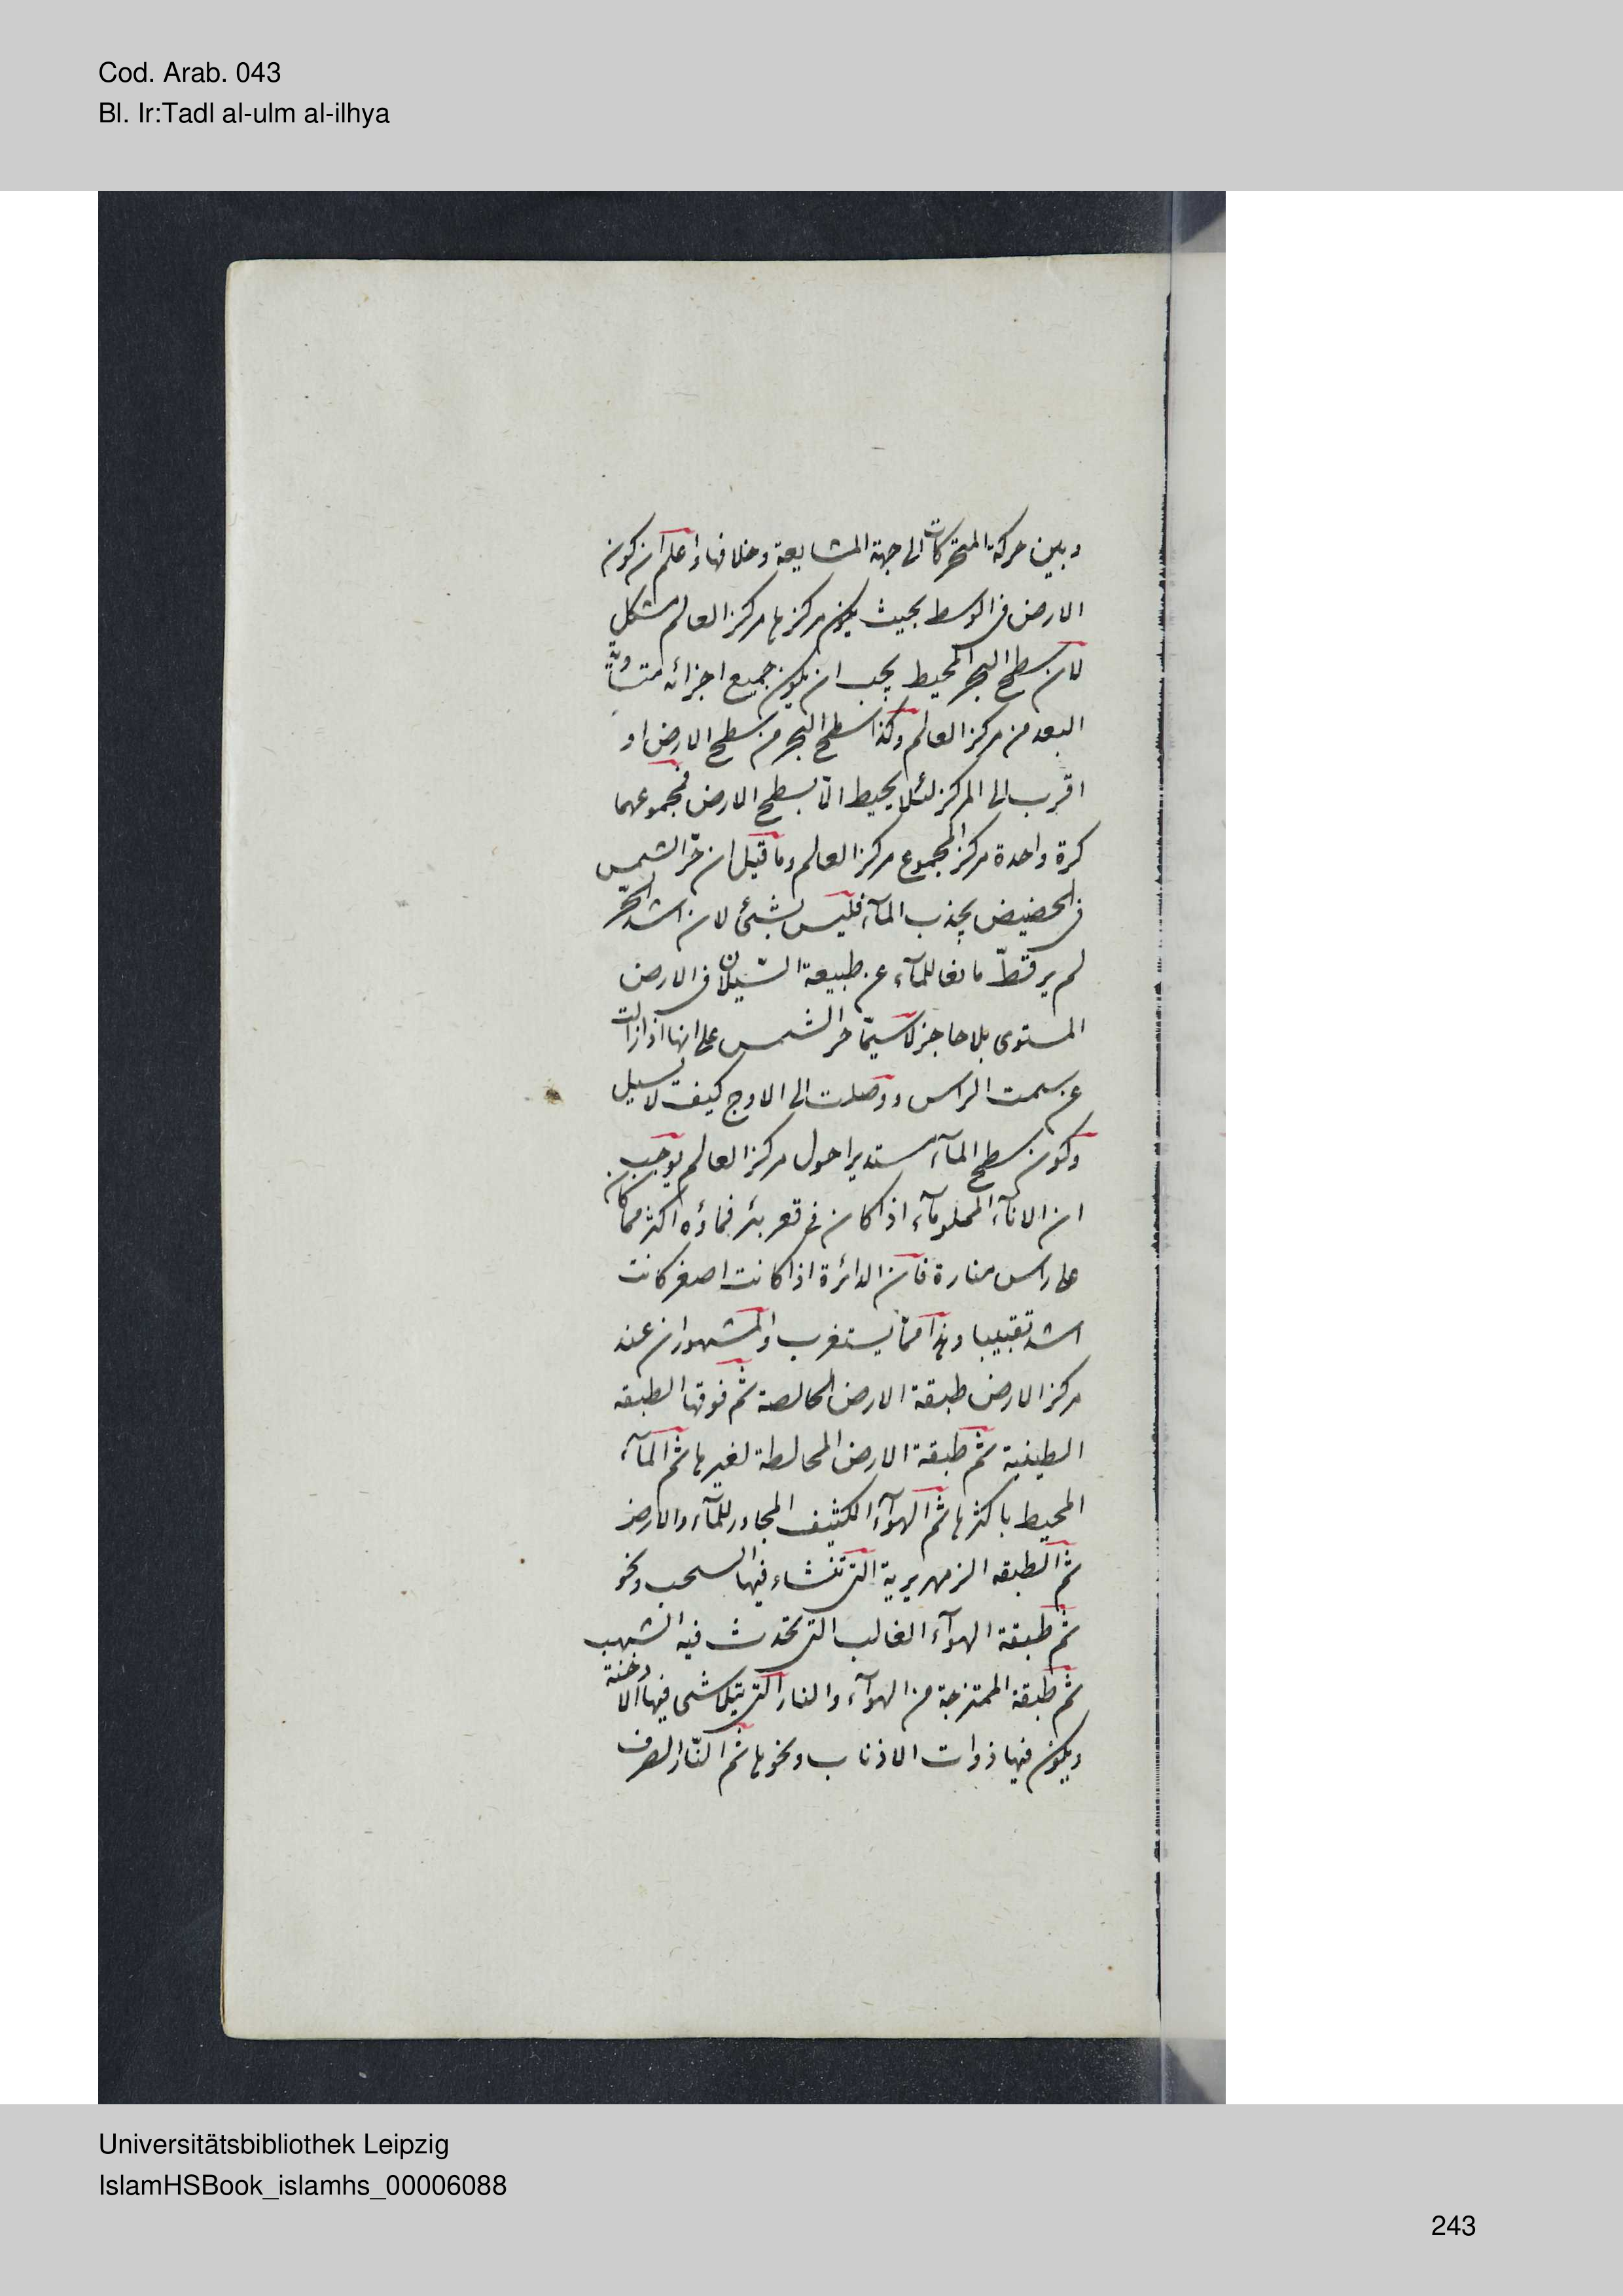 Cod. Arab. 043
Bl. Ir:Tadl al-ulm al-ilhya
وبين حركة المتحركات الى جهة المشايعة وخلافها واعلم ان كون
الارض فى الوسط بحيث يكون مركزها مركز العالم مشكل
لان سطح البحر المحيط يجب ان يكون جميع اجزائه متساوية
البعد من مركز العالم وكذا سطح البحر من سطح الارض او
اقرب الى المركز لئلا يحيط الماء بسطح الارض فمجموعهما
كرة واحدة مركز المجموع مركز العالم وما قيل ان حرّ الشمس
فى الحضيض يجذب المآء فليس بشئ لان اشد الحرّ
لم ير قطّ مانعا للمآء عن طبيعة السّيلان فى الارض
المستوى بلا حاجز لا سيّما حر الشمس على انها اذا زالت
عن سمت الراس ووصلت الى الاوج كيف لا تسيل
وكون سطح المآء مستديرا حول مركز العالم يوجب
ان الانآء المملو مآء اذا كان فى قعر بئر فماؤه اكثر مما كان
على راس منارة فان الدائرة اذا كانت اصغر كانت
اشد تقبيبا وهذا ممّا يستغرب والمشهور ان عند
مركز الارض طبقة الارض الخالصة ثم فوقها الطبقه
الطينية ثم طبقة الارض المخالطة لغيرها ثم المآء
المحيط باكثرها ثم الهوآء الكثيف المجاور للمآء والارض
ثم الطبقه الزمهريرية التى تنشاء فيها السحب ونحو
ثم طبقة الهوآء الغالب التى تحدث فيه الشهب
ثم طبقة الممتزجة من الهوآء والنار التى يتلاشى فيها الادخنة
ويكون فيها ذوات الاذناب ونحوها ثم النّار الصرف
Universitätsbibliothek Leipzig
IslamHSBook_islamhs_00006088
243